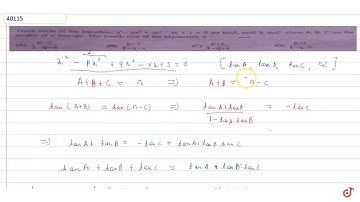 40115
Three roots of the equation, x⁴ - px³ + qx² - rx + s = 0 are tanA, tanB & tanC where A, B, C are the angles of a triangle. The fourth root of the biquadratic is
x⁴ - px³ + qx² - rx + s = 0 [tanA, tanB, tanC, α]
A+B+C = π ⇒ A+B = π-C
tan(A+B) = tan(π-C) ⇒ tanA+tanB / 1-tanA tanB = -tanC
⇒ tanA + tanB = -tanC + tanA.tanB.tanC
tanA + tanB + tanC = tanA.tanB.tanC